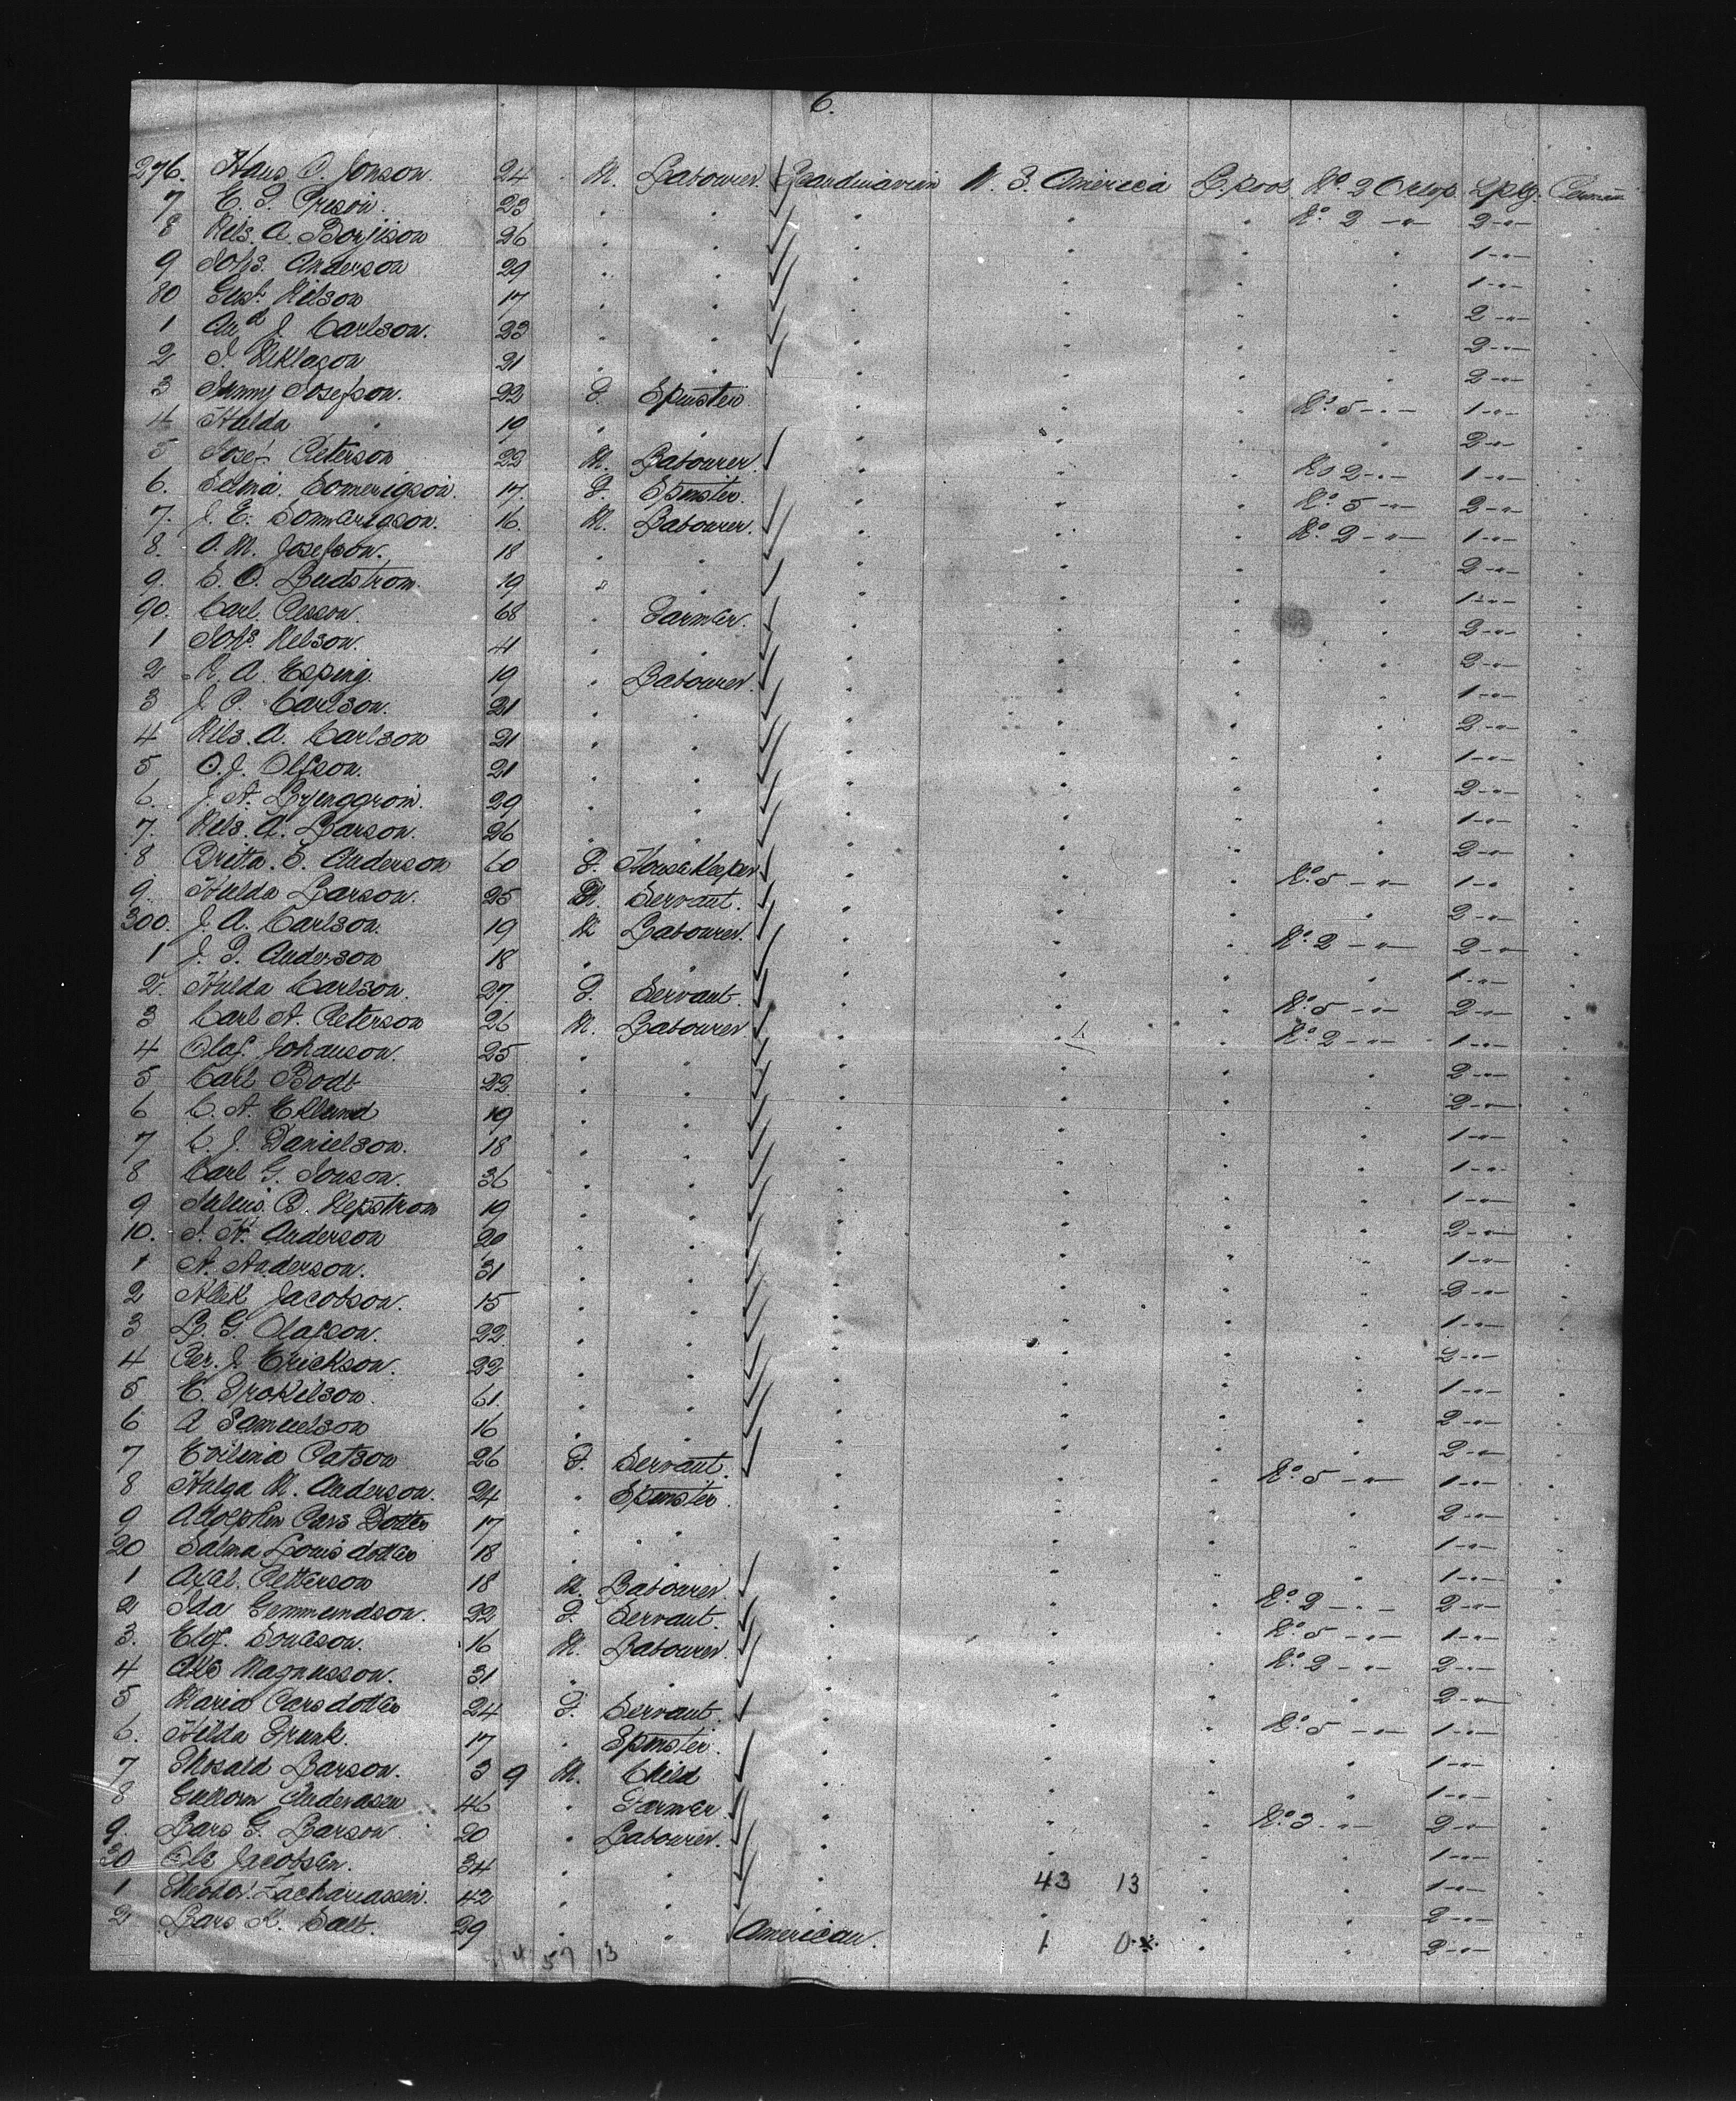 6.
276. Hans P. Jonson. 24 M. Labourer. Scandinavian U. S. America L.pool. No. 2 2 pkg.
7 E. 23 " " " " " No. 2 - " - 2 - " -
8 Nils. A. Borjison 26 " " " " " " 1 - " -
9 Johs. Anderson 29 " " " " " " 1 - " -
80 Gust. Nilson 17 " " " " " " 2 - " -
1 And J. Carlson. 23 " " " " " " 2 - " -
2 J. Niklason 21 " " " " " " 2 - " -
3 Josefson. 22 F. Spinster " " " No. 5 - " - 1 - " -
4 Hulda " 19 " " " " " " 2 - " -
5 Josef Peterson 22 M. Labourer. " " " No 2 - " - 1 - " -
6. Selma 17. F. Spinster. " " " No. 5 - " - 2 - " -
7. J. E. 16. M. Labourer. " " " No. 2 - " - 1 - " -
8. O. M. Josefson. 18 " " " " " " 2 - " -
9. C. O. 19 " " " " " " 1 - " -
90. Carl. 68 " Farmer. " " " " 2 - " -
1 Johs. Nelson. 41 " " " " " " 2 - " -
2 A. Esping. 19 " Labourer. " " " " 1 - " -
3 J. P. Carlson. 21 " " " " " " 2 - " -
4 Nils. A. Carlson 21 " " " " " " 1 - " -
5 O. J. Olfson. 21 " " " " " " 2 - " -
6. J. A. 29 " " " " " " 1 - " -
7. Nels. A. Larson. 26 " " " " " " 2 - " -
8 Britta. C. Anderson 60 F. HouseKeeper " " " No. 5 - " - 1 - "
9. Hulda Larson. 25 Servant. " " " " 2 - " -
300. J. A. Carlson. 19 M Labourer. " " " No. 2 - " - 2 - " -
1 J. F. Anderson 18 " " " " " " 1 - " -
2. Hulda Carlson. 27. F. Servant. " " " No. 5 - " - 2 - " -
3 Carl A. Peterson 26 M. Labourer " " " No. 2 - " - 1 - " -
4 Olaf. Johanson. 25 " " " " " " 2 - " -
5 Carl Bodt 22 " " " " " " 2 - " -
6 C. A. Eklund 19 " " " " " " 1 - " -
7 C. J. Danielson. 18 " " " " " " 1 - " -
8 Carl G. Jonson. 36 " " " " " " 1 - " -
9 Julius. B. 19 " " " " " " 2 - " -
10. J. A. Anderson 20 " " " " " " 1 - " -
1 A. Anderson. 31 " " " " " " 2 - " -
2 Alek Jacobson. 15 " " " " " " 1 - " -
3 L. G. Olafson. 22 " " " " " " 2 - " -
4 Per. J. Erickson. 22 " " " " " " 1 - " -
5 E. 61. " " " " " " 2 - " -
6 A Samuelson 16 " " " " " " 2 - " -
7 Evilina Patson 26 F. Servant. " " " No. 5 - " - 1 - " -
8 Hulga M. Anderson. 24 " Spinster. " " " " 2 - " -
9 Adolphin Pers Dotter 17 " " " " " " 1 - " -
20 Salma Louis dotter 18 " " " " " " 1 - " -
1 Axel. Petterson 18 M. Labourer. " " " No. 2 - " - 2 - " -
2 Ida 22 F. Servant. " " " No. 5 - " - 1 - " -
3. Elof. 16 M. Labourer. " " " No. 2 - " - 2 - " -
4 Magnusson. 31 " " " " " " 2 - " -
5 Maria Carsdotter 24 F. Servant. " " " No. 5 - " - 1 - " -
6. Hilda 17 " Spinster. " " " " 1 - " -
7 Larson. 3 9 M. Child " " " " 1 - " -
8 46 " Farmer. " " " No. 3 - " - 2 - "
9. Lars G. Larson. 20 " Labourer. " " " " 1 - " -
30 Ole Jacobsen. 34 " " " 43 13 " " 1 - " -
1 Theodor. Zachariassen. 42 " " " " " " 2 - " -
2 Lars K. 29 " " American. 1 0 " " 2 - " -
4 57 13